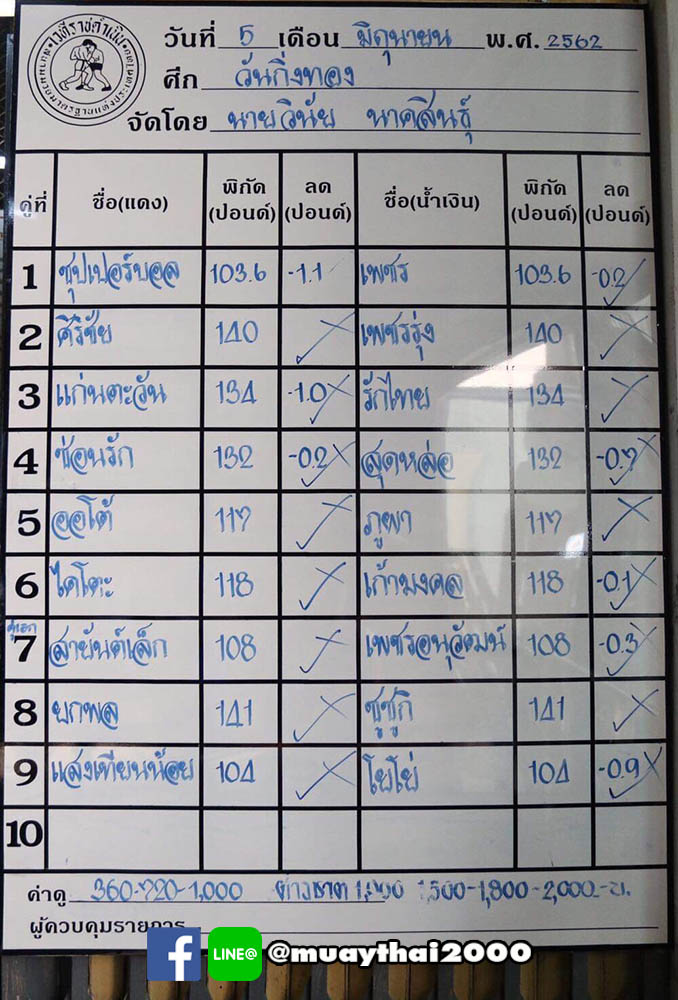 เวทีราชดำเนิน
วันที่ 5 เดือน มิถุนายน พ.ศ. 2562
ศึก วันกิ่งทอง
จัดโดย นายวินัย นาคสินธุ์
คู่ที่ ชื่อ(แดง) พิกัด (ปอนด์) ลด (ปอนด์) ชื่อ(น้ำเงิน) พิกัด (ปอนด์) ลด (ปอนด์)
1 ซุปเปอร์บอล 103.6 -1.1 เพชร 103.6 -0.2
2 ศิริชัย 140 เพชรรุ่ง 140
3 แก่นตะวัน 134 -1.0 รักไทย 134
4 ซ่อนรัก 132 -0.2 สุดหล่อ 132 -0.7
5 ออโต้ 117 ภูผา 117
6 ไคโตะ 118 เก้ามงคล 118 -0.1
คู่เอก
7 สายันต์เล็ก 108 เพชรอนุวัฒน์ 108 -0.3
8 ยกพล 141 ซูซูกิ 141
9 แสงเทียนน้อย 104 โยโย่ 104 -0.9
10
ค่าดู 360-720-1,000 ต่างชาติ 1,500-1,800-2,000.-บ.
ผู้ควบคุมรายการ
f LINE@ @muaythai2000